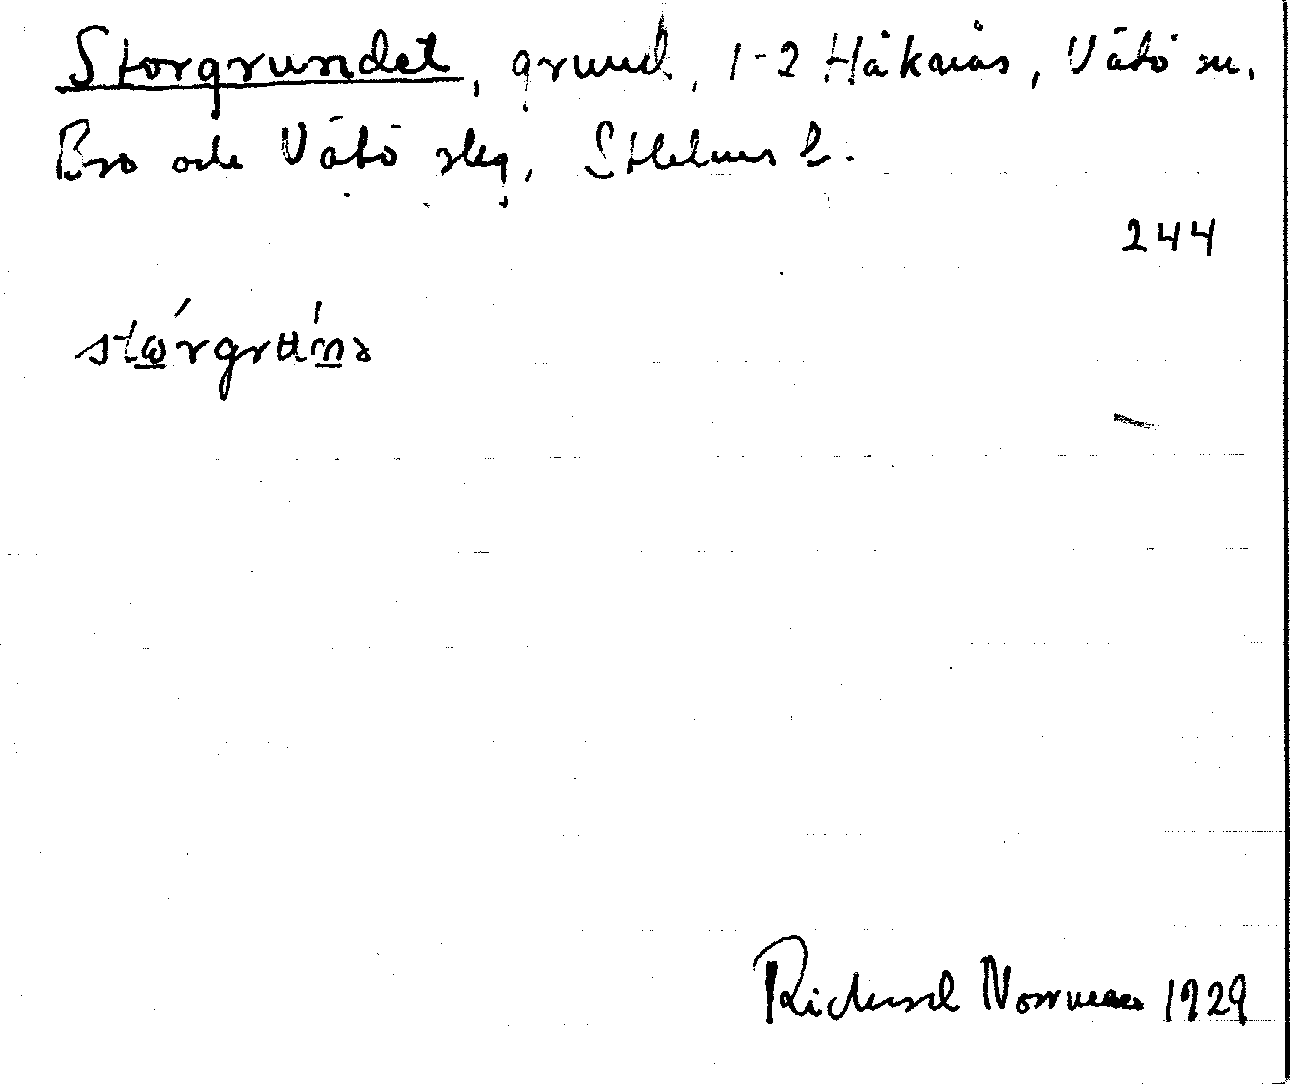 Storgrundet, grund, 1-2 Håkanäs, Vätö sn.
Bro och Vätö skg, Sthlms l.
244
Richard Norrman 1929